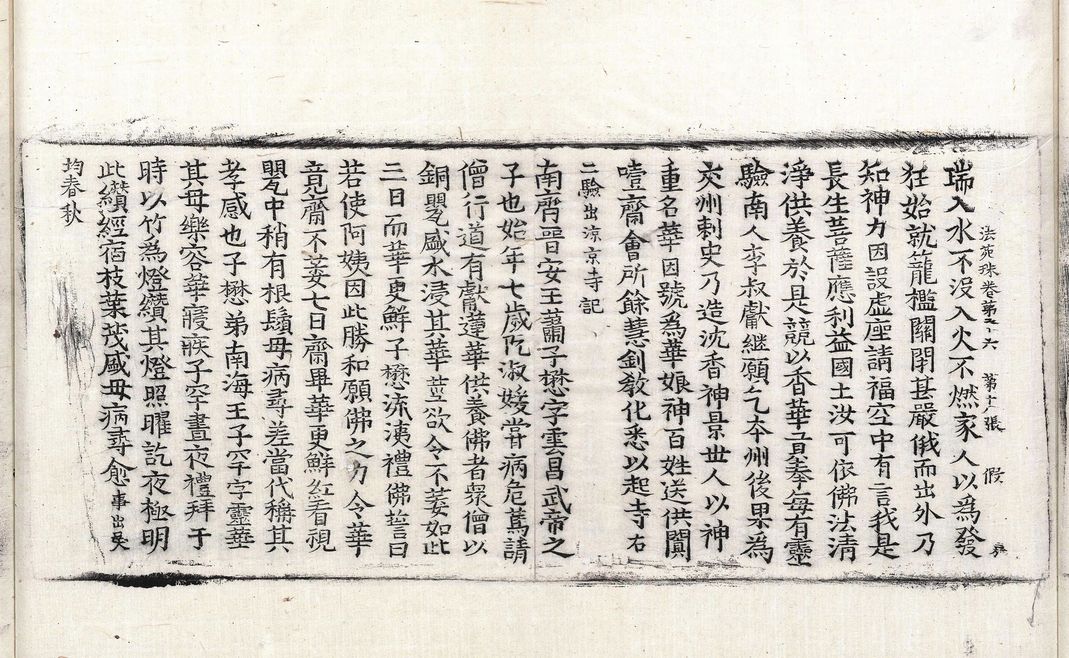 法苑珠卷第五十六 第十張 假
瑞入水不没入火不燃家人以爲發
狂始就籠檻關閉甚嚴俄而出外乃
知神力因設虚座請福空中有言我是
長生菩薩應利益國土汝可依佛法清
淨供養於是競以香華貢奉每有靈
驗南人李叔獻継願乞夲州後果爲
交州刺史乃造沈香神景世人以神
重名華因號爲華娘神百姓送供闐
噎齋會所餘慧釗教化悉以起寺右
二驗出凉京寺記
南齊晉安王蕭子懋字雲昌武帝之
子也始年七歲阮淑媛甞病危篤請
僧行道有獻蓮華供養佛者衆僧以
銅甖盛水浸其華莖欲令不萎如此
三日而華更鮮子懋流涕禮佛誓曰
若使阿姨因此勝和願佛之力令華
竟齋不萎七日齋畢華更鮮紅看視
甖中稍有根鬚母病尋差當代稱其
孝感也子懋弟南海王子罕字靈華
其母樂容華寢疾子罕晝夜禮拜于
時以竹爲燈纘其燈照曜訖夜極明
此纘經宿枝葉茂盛母病尋愈事出吳
均春秋